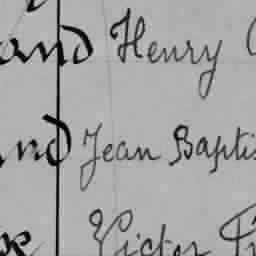 and Henry
nd Jean Baptis
Victor